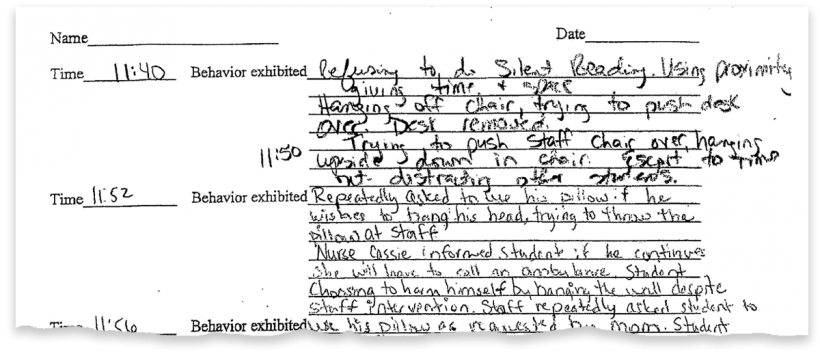 Name Date
Time 11:40 Behavior exhibited Refusing to do Silent Reading. Using proximity
giving time & space
Hanging off chair, trying to push desk
over. Desk removed.
11:50 Trying to push staff chair over, hanging
upside down in chair. Escort to time
out distracting other students.
Time 11:52 Behavior exhibited Repeatedly asked to use his pillow if he
wishes to bang his head, trying to throw the
pillow at staff
Nurse Cassie informed student if he continues
she will have to call an ambulance. Student
choosing to harm himself by banging the wall despite
staff intervention. Staff repeatedly asked student to
Time 11:56 Behavior exhibited use his pillow as requested by mom. Student